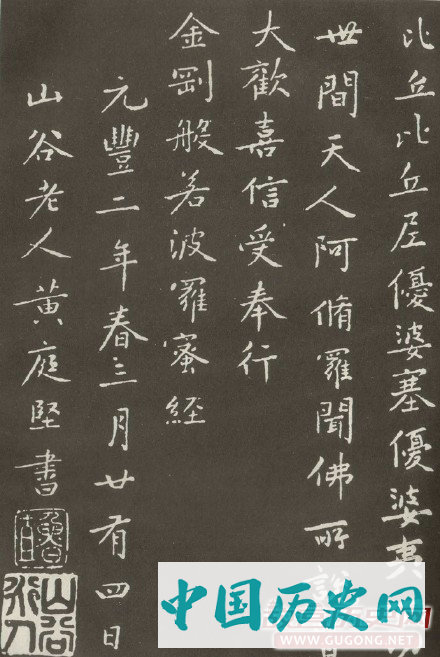 比丘比丘尼優婆塞優婆夷
世間天人阿脩羅聞佛所說
大歡嘉信受奉行
金剛般若波羅蜜經
元豐二年春三月廿有四日
山谷老人黃庭堅書
中国历史网
WWW.GUGONG.NET